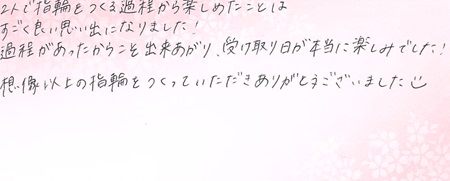 2人で指輪をつくる過程から楽しめたことは
すごく良い思い出になりました!
過程があったからこそ出来あがり、受け取り日が本当に楽しみでした!
想像以上の指輪をつくっていただきありがとうございました☺